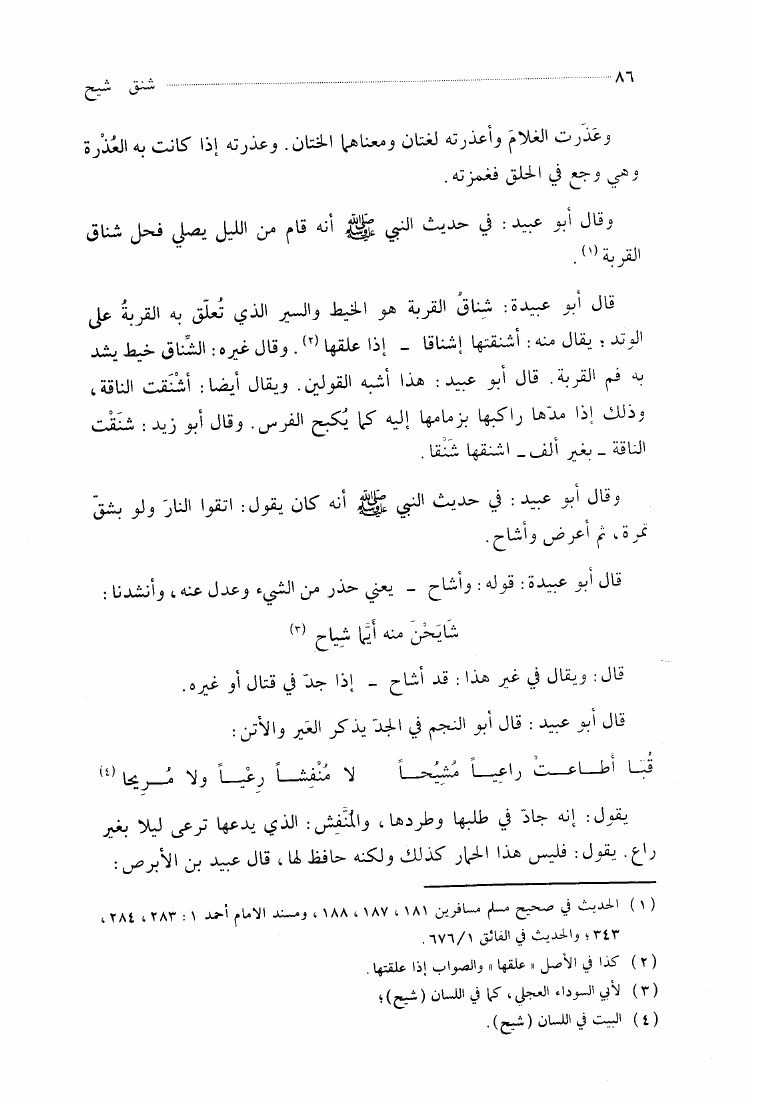 ٨٦ شنق شيح
وعَذَرت الغلامَ وأعذرته لغتان ومعناهما الختان. وعذرته إذا كانت به العُذْرة
وهي وجع في الحلق فغمزته.
وقال أبو عبيد: في حديث النبي ﷺ أنه قام من الليل يصلي فحل شناق
القربة (١).
قال أبو عبيدة: شِناقُ القربة هو الخيط والسير الذي تُعلّق به القربةُ على
الوتد؛ يقال منه: أشنقتها إشناقا ـ إذا علقها (٢). وقال غيره: الشِّناق خيط يشد
به فم القربة. قال أبو عبيد: هذا أشبه القولين. ويقال أيضا: أشْنَقت الناقة،
وذلك إذا مدّها راكبها بزمامها إليه كما يُكبح الفرس. وقال أبو زيد: شنَقْت
الناقة ـ بغير ألف ـ اشنقها شَنْقا.
وقال أبو عبيد: في حديث النبي ﷺ أنه كان يقول: اتقوا النارَ ولو بشقّ
تمرة، ثم أعرض وأشاح.
قال أبو عبيدة: قوله: وأشاح ـ يعني حذر من الشيء وعدل عنه، وأنشدنا:
شَايَحْنَ منه أيَّما شِياح (٣)
قال: ويقال في غير هذا: قد أشاح ـ إذا جدّ في قتال أو غيره.
قال أبو عبيد: قال أبو النجم في الجدّ يذكر العَير والأتن:
قُبّا أطاعتْ راعِياً مُشِيْحاً لا مُنْفِشاً رِعْياً ولا مُرِيحا (٤)
يقول: إنه جادّ في طلبها وطردها، والمُنَّفِش: الذي يدعها ترعى ليلا بغير
راع. يقول: فليس هذا الحمار كذلك ولكنه حافظ لها، قال عبيد بن الأبرص:
(١) الحديث في صحيح مسلم مسافرين ١٨١، ١٨٧، ١٨٨، ومسند الامام أحمد ١: ٢٨٣، ٢٨٤،
٣٤٣؛ والحديث في الفائق ٦٧٦/١.
(٢) كذا في الأصل «علقها» والصواب إذا علقتها.
(٣) لأبي السوداء العجلي، كما في اللسان (شيح)؛
(٤) البيت في اللسان (شيح).